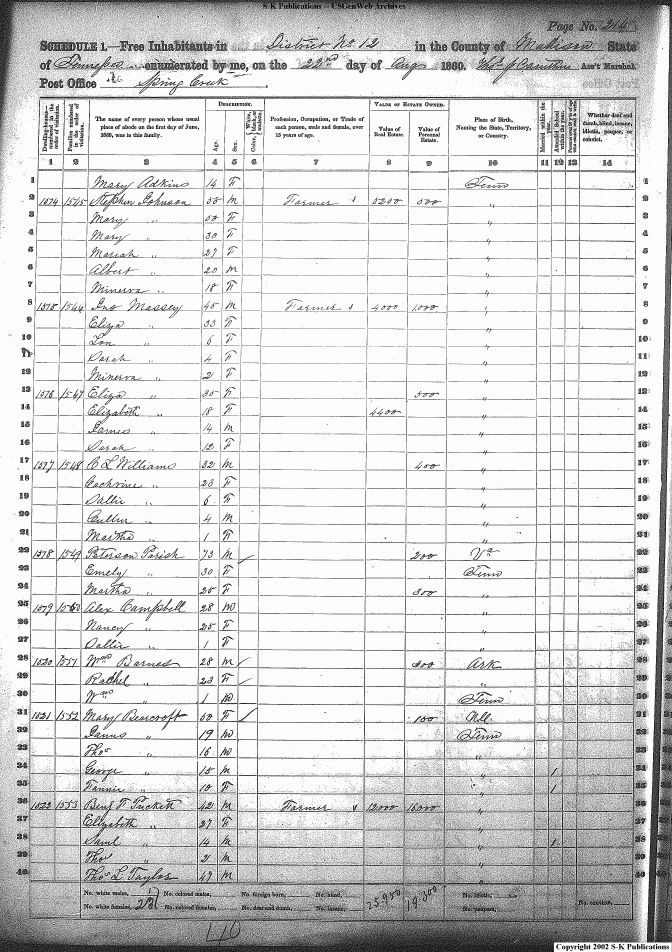 S-K Publications - USGenWeb Archives
Page No. 214
SCHEDULE 1.—Free Inhabitants in District No 12 in the County of Madison State
of Tennessee enumerated by me, on the 22nd day of Aug 1860. Ass't Marshal.
Post Office Spring Creek
Dwelling-houses numbered in the order of visitation. Families numbered in the order of visitation. The name of every person whose usual place of abode on the first day of June, 1860, was in this family. DESCRIPTION. Age. Sex. Color, White, black, or mulatto. Profession, Occupation, or Trade of each person, male and female, over 15 years of age. VALUE OF ESTATE OWNED. Value of Real Estate. Value of Personal Estate. Place of Birth, Naming the State, Territory, or Country. Married within the year. Attended School within the year. Whether deaf and dumb, blind, insane, idiotic, pauper, or convict.
1 2 3 4 5 6 7 8 9 10 11 12 13 14
1 Mary Adkins 14 F Tenn 1
2 1574 1545 Stephen Johnson 58 M Farmer 5200 500 " 2
3 Mary " 50 F " 3
4 Mary " 30 F " 4
5 Mariah " 27 F " 5
6 Albert " 20 M " 6
7 Minerva " 18 F " 7
8 1575 1546 Jno Massey 45 M Farmer 4000 1000 " 8
9 Eliza " 33 F " 9
10 Lou " 6 F " 10
11 Sarah " 4 F " 11
12 Minerva " 2 F " 12
13 1576 1547 Eliza " 35 F 500 " 13
14 Elizabeth " 18 F 4400 " 14
15 James " 14 M " 15
16 Sarah " 12 F " 16
17 1577 1548 C L Williams 32 M 400 " 17
18 Cathrine " 23 F " 18
19 Sallie " 6 F " 19
20 Cullen " 4 M " 20
21 Martha " 1 F " 21
22 1578 1549 Peterson Parish 73 M 200 Va 22
23 Emely " 30 F Tenn 23
24 Martha " 25 F 300 " 24
25 1579 1550 Alex Campbell 28 M " 25
26 Nancy " 25 F " 26
27 Sallie " 1 F " 27
28 1520 1551 Wm Barnes 28 M Ark 28
29 Rachel " 23 F " 29
30 Wm " 1 M Tenn 30
31 1521 1552 Mary Bencroft 50 F 100 31
32 James " 19 M Tenn 32
33 Thos " 16 M " 33
34 George " 15 M " 1 34
35 Fannie " 10 F " 1 35
36 1522 1553 Benj F Puckett 42 M Farmer 12000 15000 " 36
37 Elizabeth " 27 F " 37
38 Saml " 14 M " 1 38
39 Thos " 2 M " 39
40 Thos L Taylor 47 M " 40
No. white males, 17 No. colored males, No. foreign born, No. blind, 25,950 19,300 No. idiotic, No. convict,
No. white females, 23 No. colored females, No. deaf and dumb, No. insane, No. paupers,
40
Copyright 2002 S-K Publications